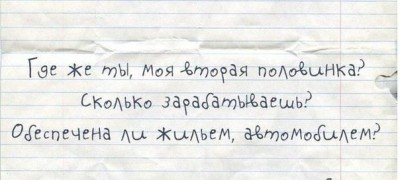 Где же ты, моя вторая половинка?
Сколько зарабатываешь?
Обеспечена ли жильем, автомобилем?